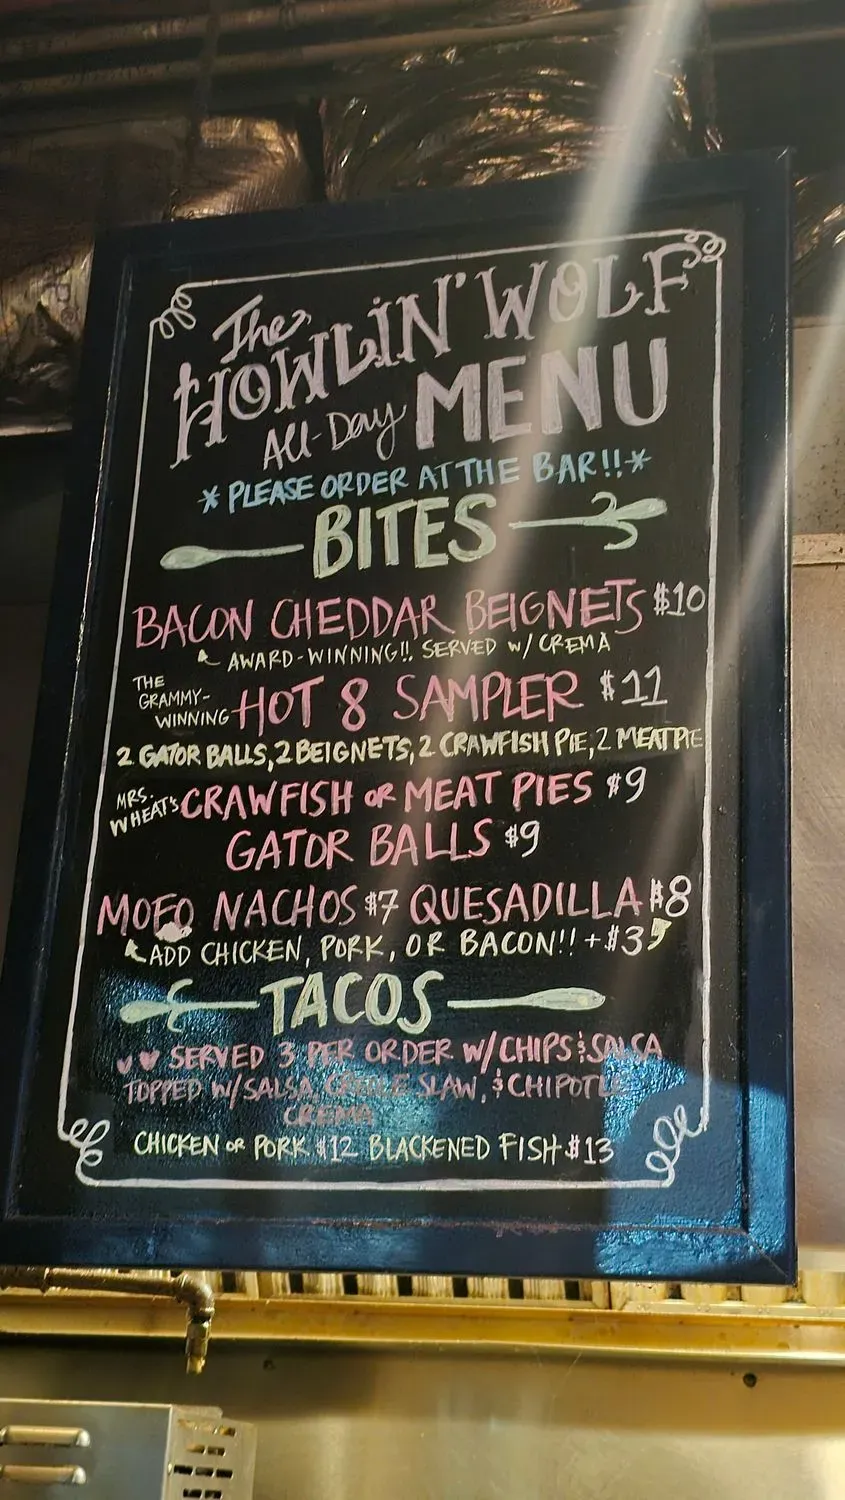 The
HOWLIN' WOLF
All-Day MENU
*PLEASE ORDER AT THE BAR!!*
BITES
BACON CHEDDAR BEIGNETS $10
AWARD-WINNING!! SERVED W/ CREMA
THE GRAMMY-WINNING HOT 8 SAMPLER $11
2 GATOR BALLS, 2 BEIGNETS, 2 CRAWFISH PIE, 2 MEATPIE
MRS. WHEAT'S CRAWFISH OR MEAT PIES $9
GATOR BALLS $9
MOFO NACHOS $7 QUESADILLA $8
ADD CHICKEN, PORK, OR BACON!! +$3
TACOS
SERVED 3 PER ORDER W/CHIPS & SALSA
TOPPED W/SALSA, CREOLE SLAW, & CHIPOTLE
CREMA
CHICKEN OR PORK $12 BLACKENED FISH $13